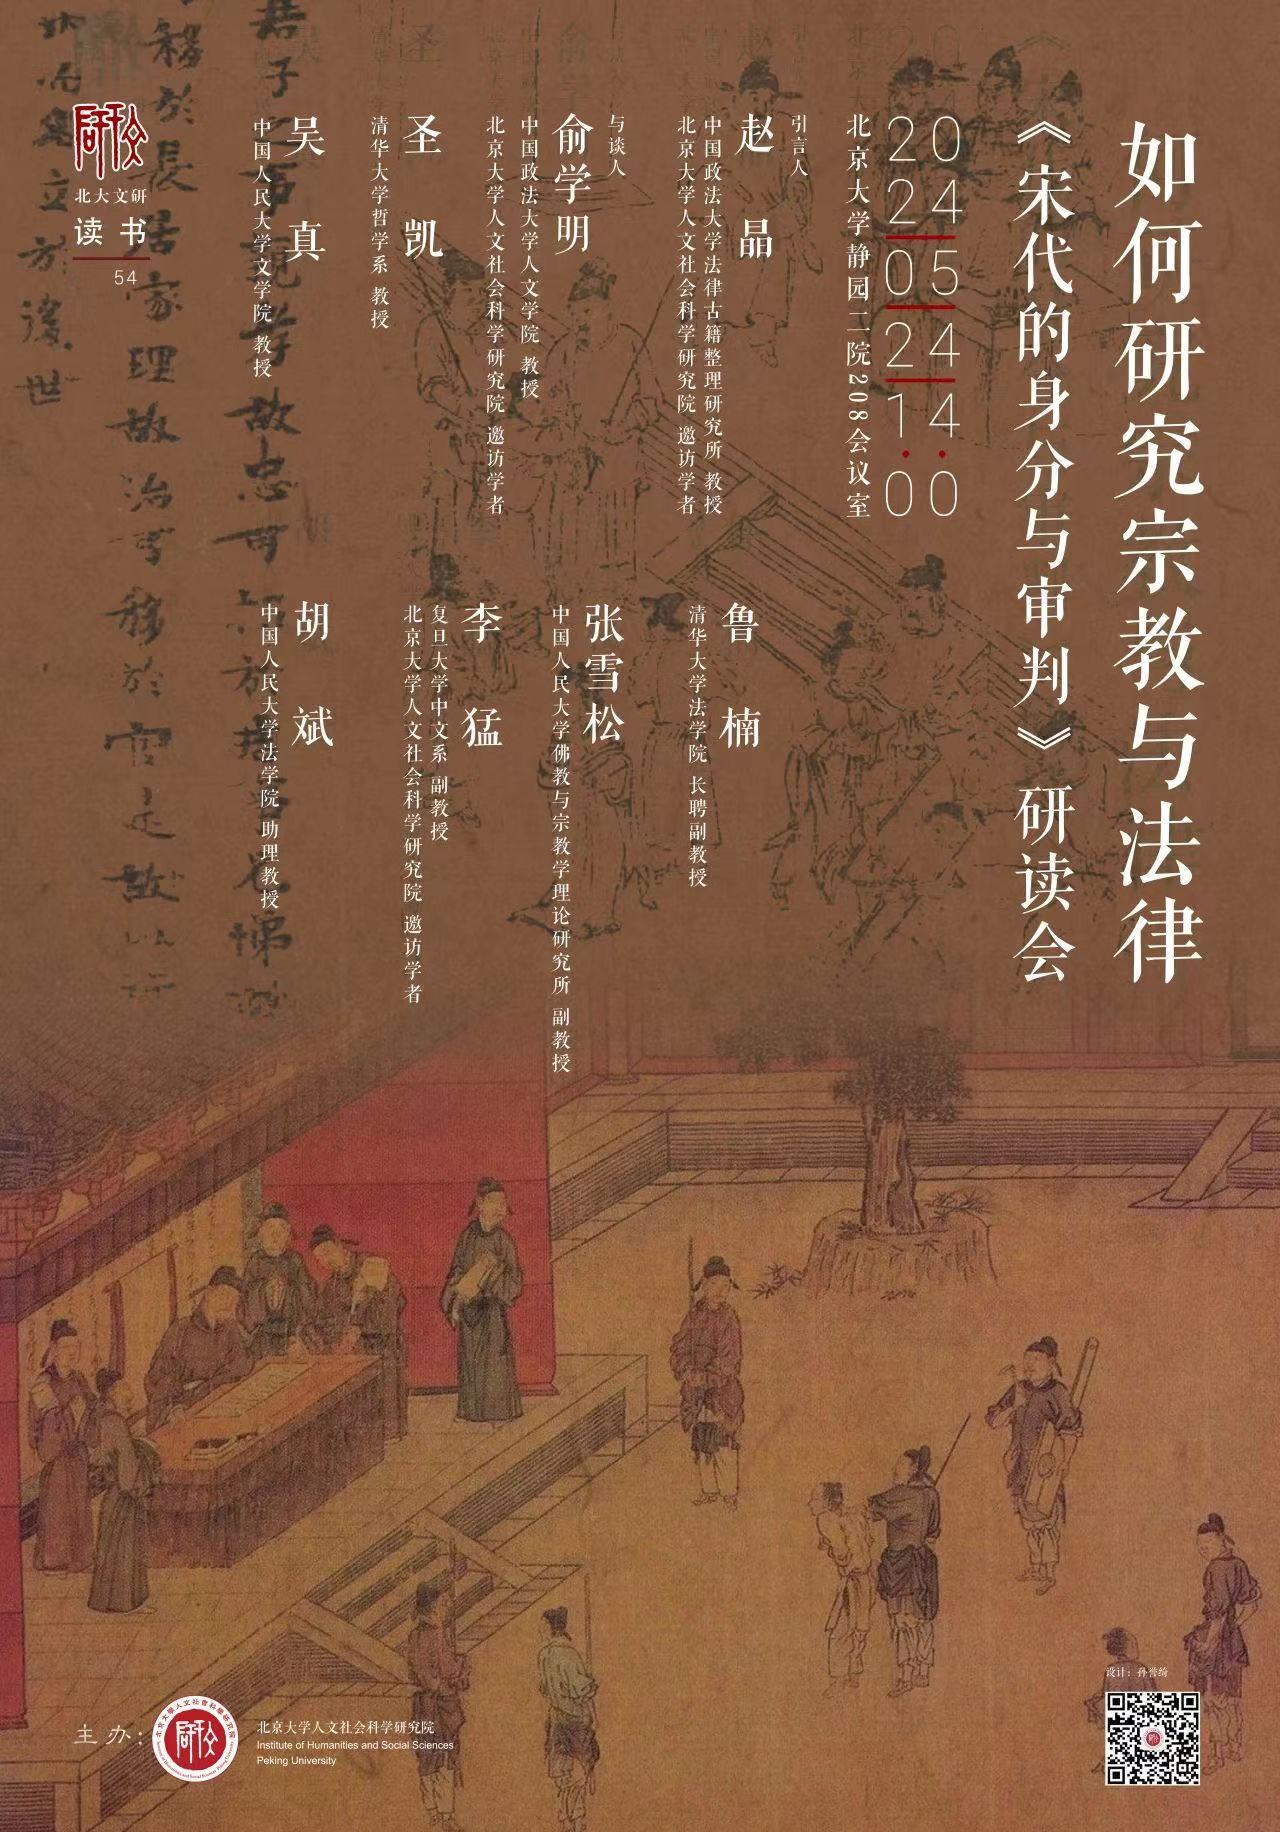 如何研究宗教与法律
《宋代的身分与审判》研读会
20
24
05
24
14:
00
北京大学静园二院208会议室
引言人
赵晶
中国政法大学法律古籍整理研究所 教授
北京大学人文社会科学研究院 邀访学者
与谈人
俞学明
中国政法大学人文学院 教授
北京大学人文社会科学研究院 邀访学者
圣凯
清华大学哲学系 教授
吴真
中国人民大学文学院 教授
鲁楠
清华大学法学院 长聘副教授
张雪松
中国人民大学佛教与宗教学理论研究所 副教授
李猛
复旦大学中文系 副教授
北京大学人文社会科学研究院 邀访学者
胡斌
中国人民大学法学院 助理教授
北大文研
读书
54
移於長居家理故治可移於官是故
後世
主办:
北京大学人文社会科学研究院
Institute of Humanities and Social Sciences
Peking University
设计：孙誉绮